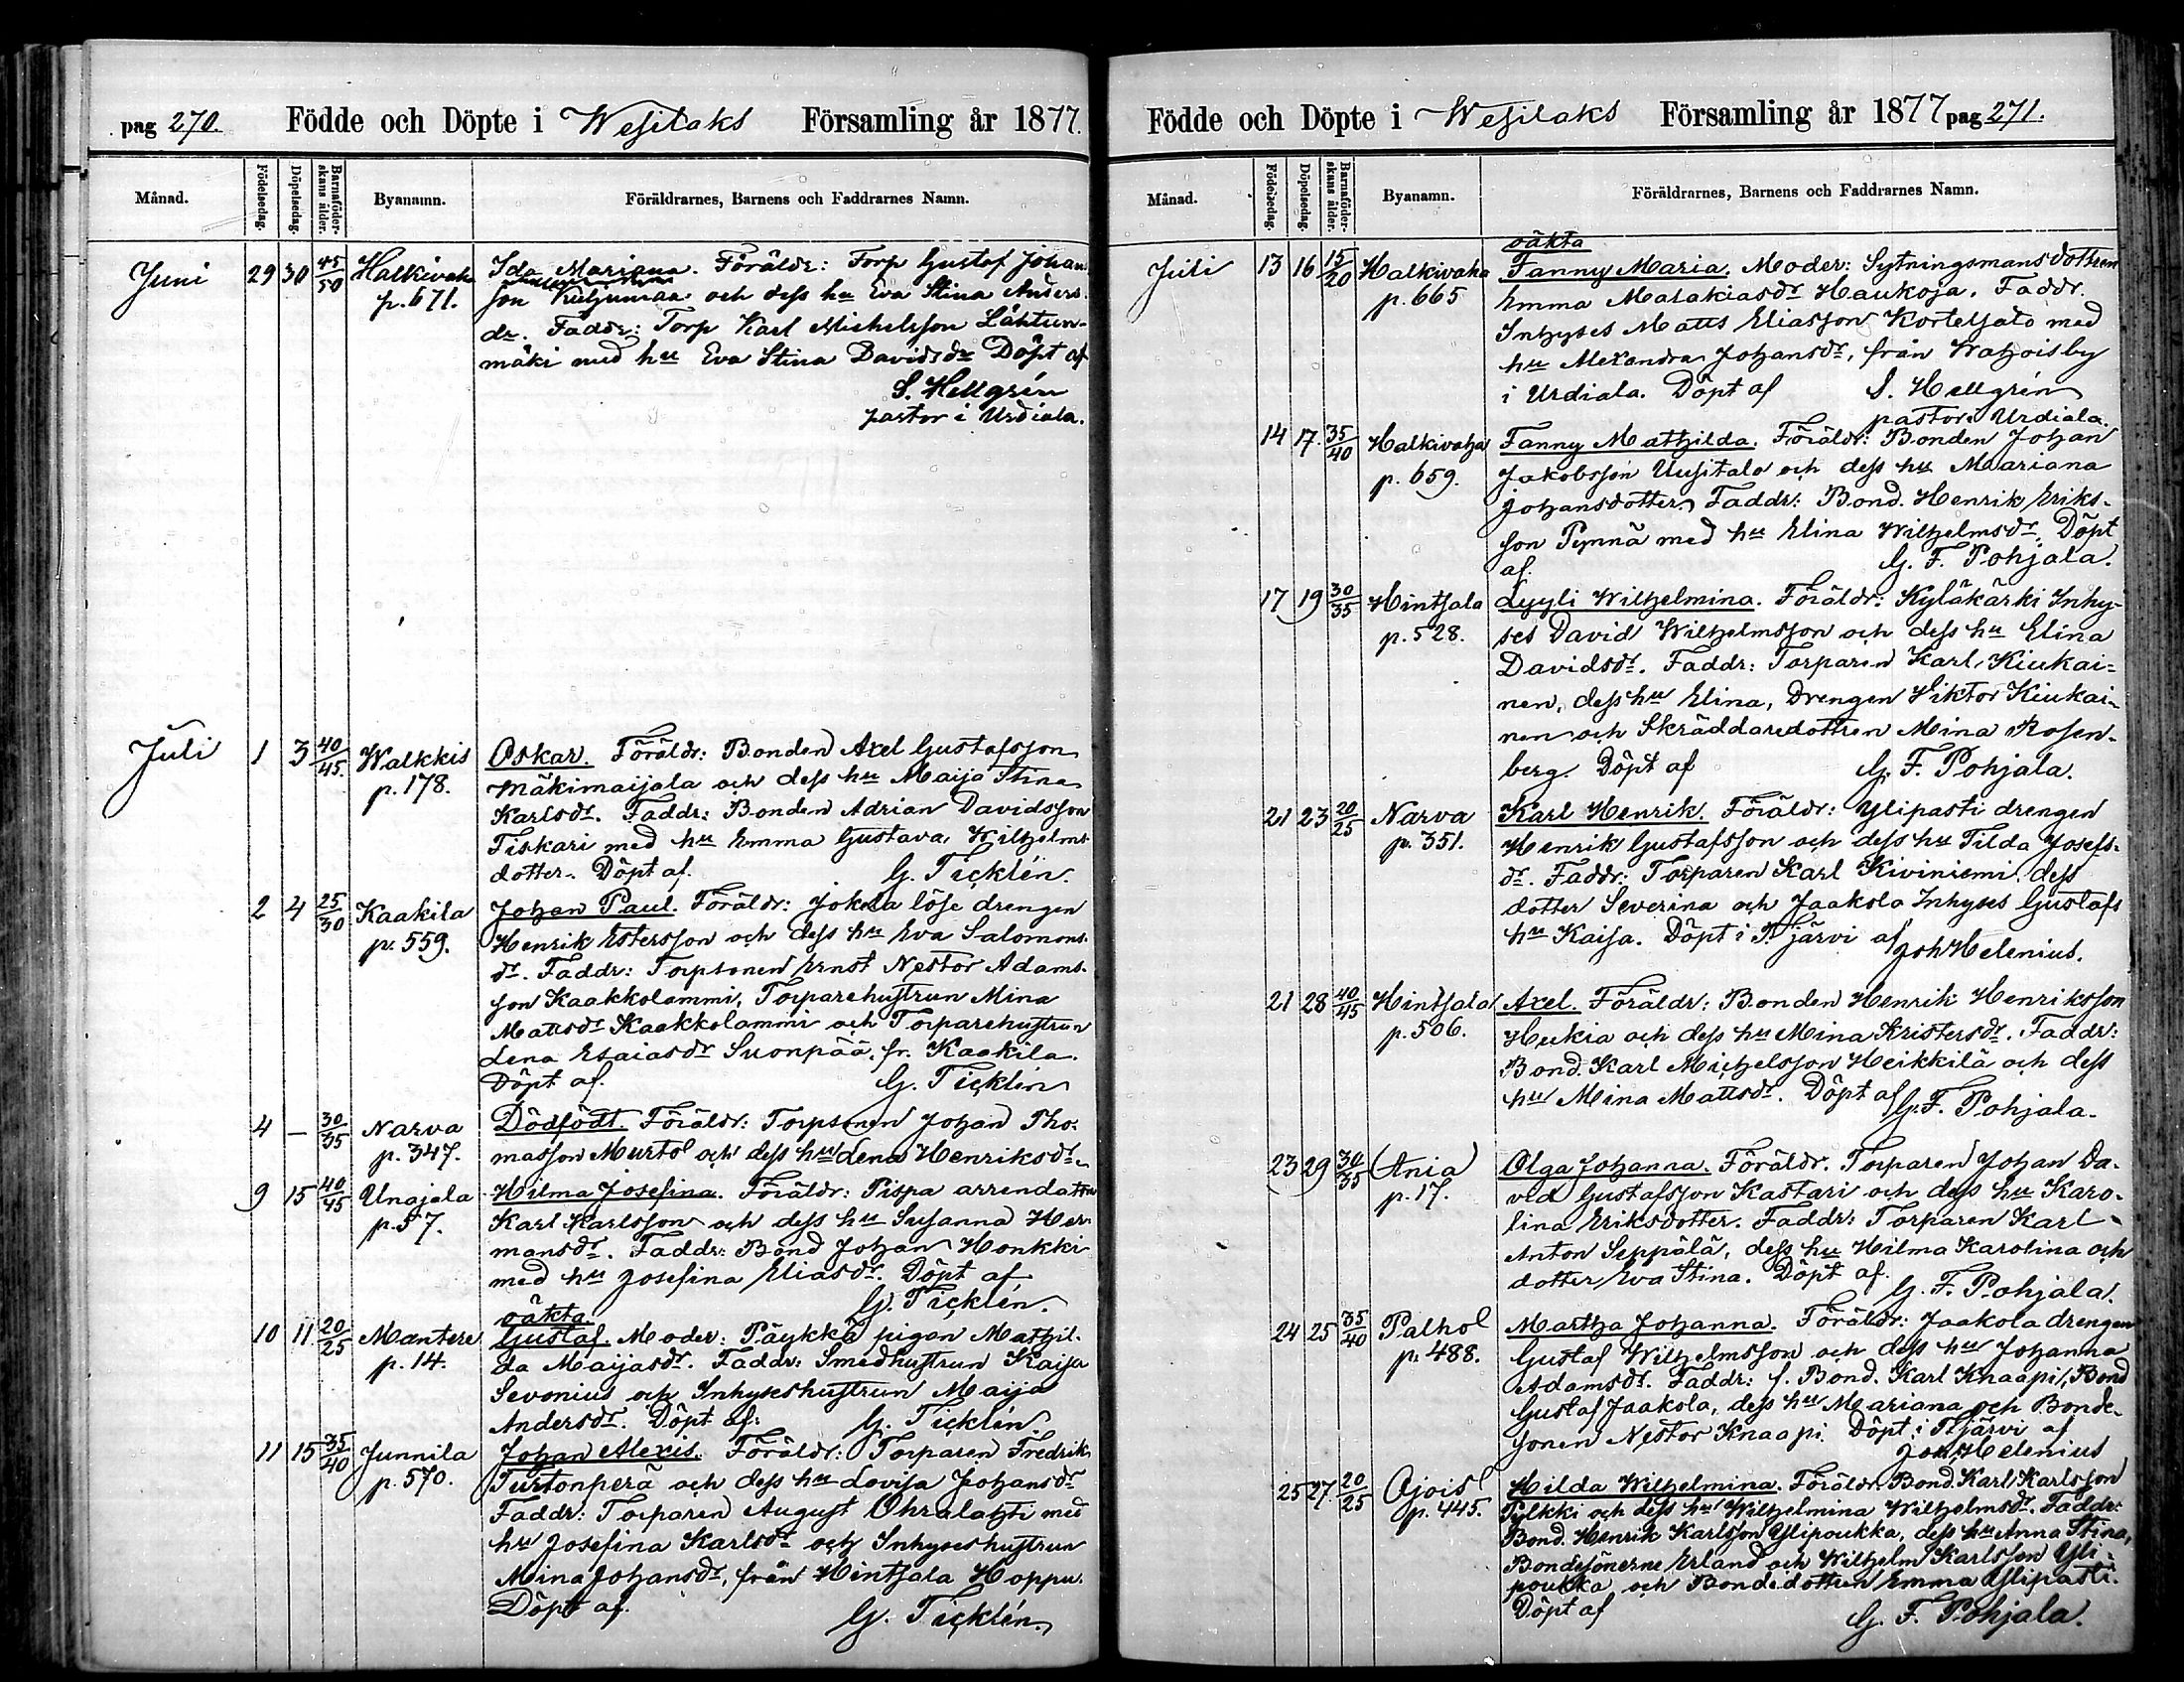 pag 270. Födde och Döpte i Wesilaks Församling år 1877.
Månad. Födelsedag. Döpelsedag. Barnaföderskans ålder. Byanamn. Föräldrarnes, Barnens och Faddrarnes Namn.
Juni 29 30 45/50 Halkivaha Ida Mariana. Föräldr: Torp Gustaf Johan
p. 671. son Kuljunmaa och dess hu Eva Stina Anders
dr. Faddr: Torp Karl Michelsson Lähteen-
mäki med hu Eva Stina Davidsdr Döpt af
S. Hellgrén
pastor i Urdiala.
Juli 1 3 40/45. Walkkis Oskar. Föräldr: Bonden Axel Gustafsson
p. 178. Mäkimaijala och dess hu Maija Stina
Karlsdr. Faddr: Bonden Adrian Davidsson
Tiskari med hu Emma Gustava Wilhelms-
dotter. Döpt af. G. Ticklén.
2 4 25/30 Kaakila Johan Paul. Föräldr: Jokela löse drengen
p. 559. Henrik Estersson och dess hu Eva Salomons-
dr. Faddr: Torpsonen Ernst Nestor Adams-
son Kaakkolammi, Torparehustrun Mina
Mattsdr Kaakkolammi och Torparehustrun
Lena Esaiasdr Suonpää, fr. Kaakila.
Döpt af. G. Ticklén
4 — 30/35 Narva Dödfödt. Föräldr: Torpsonen Johan Tho-
p. 347. masson Murto och dess hu Lena Henriksdr.
9 15 40/45 Unajala Hilma Josefina. Föräldr: Pispa arrendatorn
p. 57. Karl Karlsson och dess hu Susanna Her-
mansdr. Faddr: Bond Johan Honkki
med hu Josefina Eliasdr. Döpt af
G. Ticklén.
oäkta.
10 11. 20/25 Mantere Gustaf. Moder: Päykkä pigan Mathil-
p. 14. da Maijasdr. Faddr: Smedhustrun Kaisa
Sevonius och Inhyseshustrun Maija
Andersdr. Döpt af: G. Ticklén
11 15 35/40 Junnila Johan Alexis. Föräldr: Torparen Fredrik
p. 570. Turtonperä och dess hu Lovisa Johansdr
Faddr: Torparen August Ohralahti med
hu Josefina Karlsdr och Inhyseshustrun
Mina Johansdr, från Hintsala Hoppu.
Döpt af. G. Ticklén.
Födde och Döpte i Wesilaks Församling år 1877 pag 271.
Månad. Födelsedag. Döpelsedag. Barnaföderskans ålder. Byanamn. Föräldrarnes, Barnens och Faddrarnes Namn.
oäkta
Juli 13 16 15/20 Halkivaha Fanny Maria. Moder: Sytningsmansdottren
p. 665 Emma Malakiasdr Haukoja. Faddr.
Inhyses Matts Eliasson Kortessalo med
hu Alexandra Johansdr, från Wahoisby
i Urdiala. Döpt af S. Hellgrén
pastor i Urdiala.
14 17. 35/40 Halkivaha Fanny Mathilda. Föräldr: Bonden Johan
p. 659. Jakobsson Uusitalo och dess hu Maariana
Johansdotter. Faddr: Bond. Henrik Eriks-
son Pynnä med hu Elina Wilhelmsdr. Döpt
af. G. F. Pohjala.
17 19 30/35 Hintsala Lyyli Wilhelmina. Föräldr: Kyläkärki Inhy-
p. 528. ses David Wilhelmsson och dess hu Elina
Davidsdr. Faddr: Torparen Karl Kiukai-
nen, dess hu Elina, Drengen Wiktor Kiukai-
nen och Skräddaredottren Mina Rosen-
berg. Döpt af G. F. Pohjala.
21 23 20/25 Narva Karl Henrik. Föräldr: Ylipasti drengen
p. 351. Henrik Gustafsson och dess hu Tilda Josefs-
dr. Faddr: Torparen Karl Kiviniemi, dess
dotter Severina och Jaakola Inhyses Gustafs
hu Kaisa. Döpt i P.järvi af Joh Helenius.
21 28 40/45 Hintsala Axel. Föräldr: Bonden Henrik Henriksson
p. 506. Heukia och dess hu Mina Kristersdr. Faddr:
Bond. Karl Michelsson Heikkilä och dess
hu Mina Mattsdr. Döpt af G. F. Pohjala.
23 29 30/35 Ania Olga Johanna. Föräldr. Torparen Johan Da-
p. 17. vid Gustafsson Kastari och dess hu Karo-
lina Eriksdotter. Faddr: Torparen Karl
Anton Seppälä, dess hu Hilma Karolina och
dotter Eva Stina. Döpt af. G. F. Pohjala.
24 25 35/40 Palho Martha Johanna. Föräldr: Jaakola drengen
p. 488. Gustaf Wilhelmsson och dess hu Johanna
Adamsdr. Faddr: f. Bond. Karl Knaapi, Bond
Gustaf Jaakola, dess hu Mariana och Bonde-
sonen Nestor Knaapi. Döpt i P.järvi af
Joh. Helenius
25 27. 20/25 Ojois Hilda Wilhelmina. Föräldr. Bond. Karl Karlsson
p. 445. Pylkki och dess hu Wilhelmina Wilhelmsdr. Faddr:
Bond. Henrik Karlsson Ylipoukka, dess hu Anna Stina,
Bondesönerne Erland och Wilhelm Karlsson Yli-
poukka och Bondedottren Emma Ylipasti.
Döpt af G. F. Pohjala.